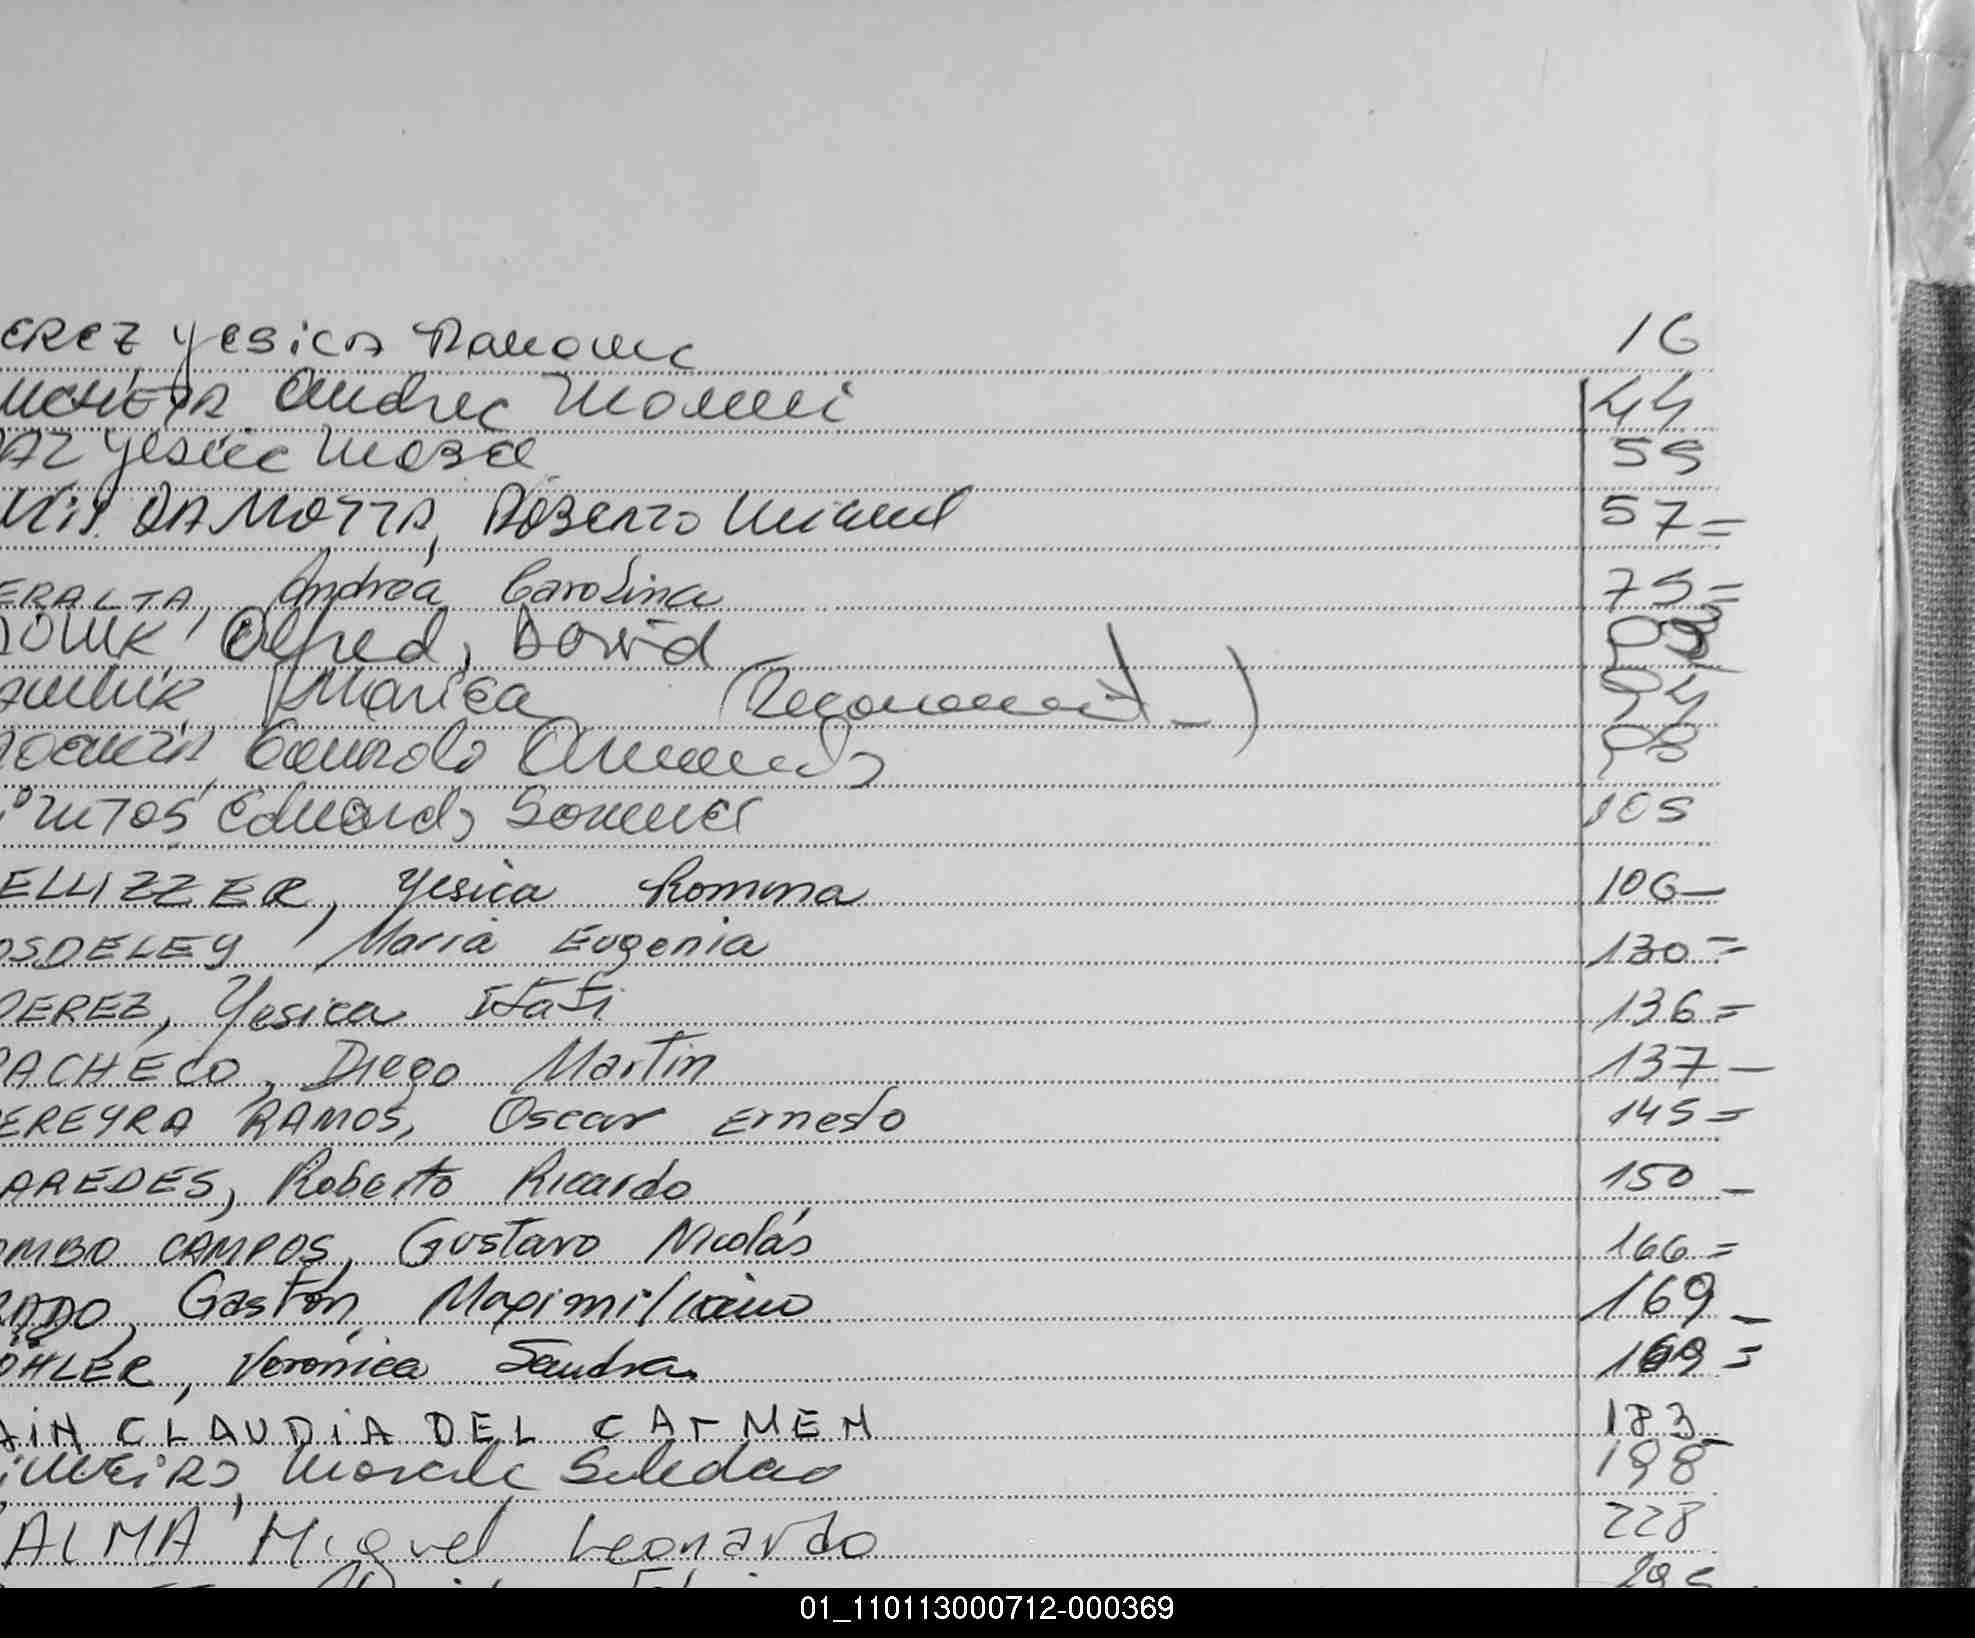 EREZ Yesica Ramona 16
Andrea Noemi 44
AZ Yesica 55
DA MOTTA, Roberto Miguel 57=
ERALTA, Andrea Carolina 75=
Alfred, David
Marisa (Reconocimient_) 94
Gonzalo Armando 98
Eduardo Samuel 105
ELLIZZER, Yesica Romina 106-
OSDELEY, Maria Eugenia 130=
PEREZ, Yesica Itatí 136=
PACHECO, Diego Martin 137-
EREYRA RAMOS, Oscar Ernesto 145=
AREDES, Roberto Ricardo 150-
OMBO CAMPOS, Gustavo Nicolás 166=
RADO, Gastón Maximiliano 169-
ÖHLER, Veronica Sandra 169=
AIN CLAUDIA DEL CARMEN 183-
Marcela Soledad 198
ALMA Miguel Leonardo 228
295
01_110113000712-000369